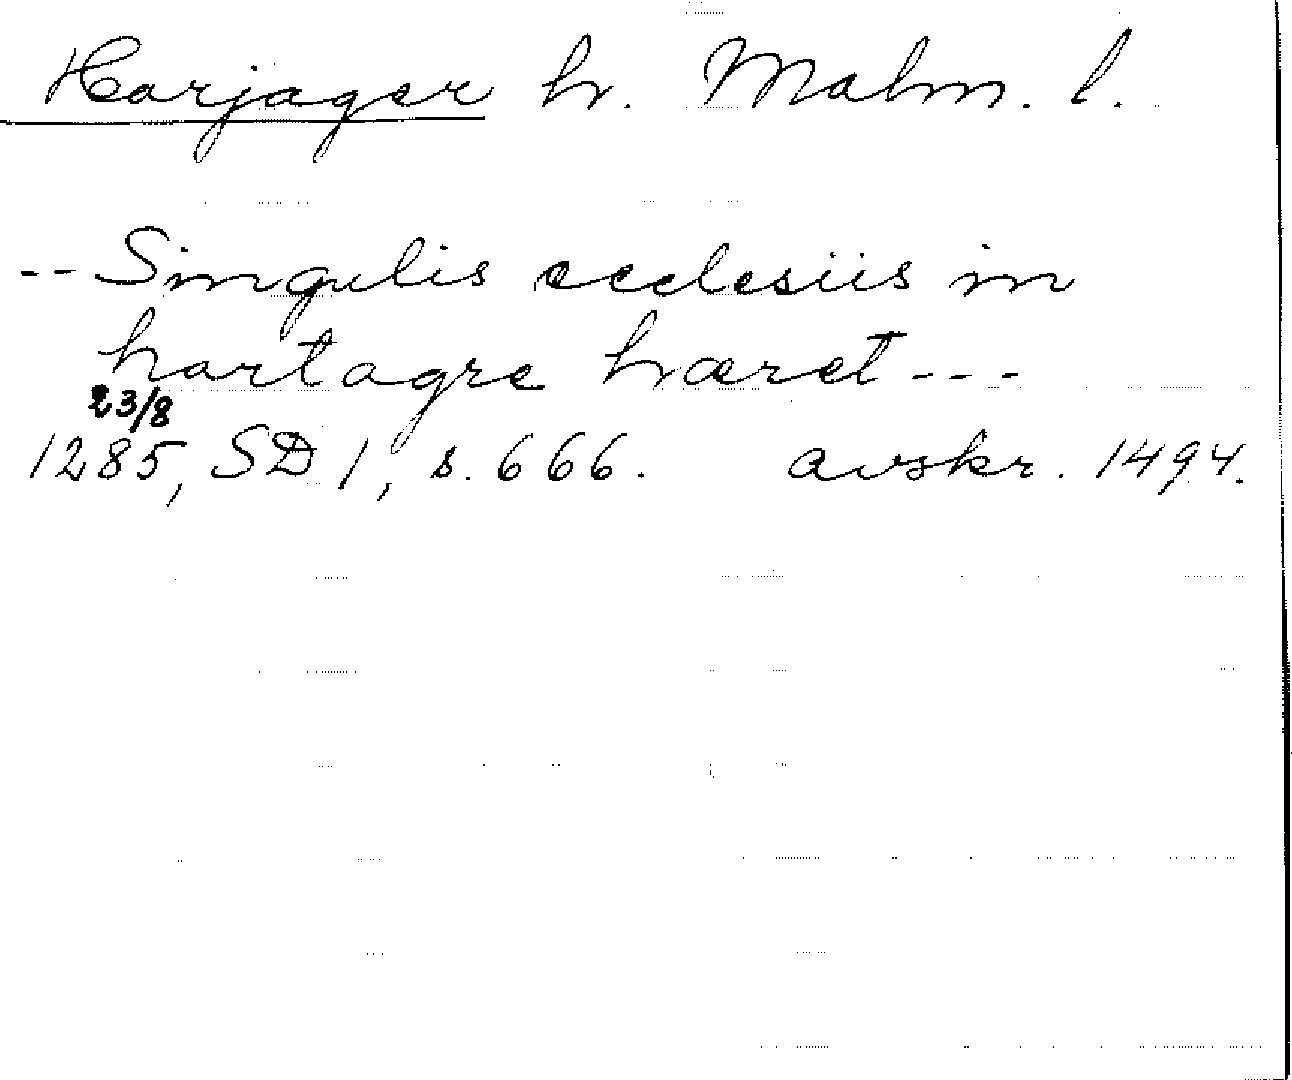 Harjager hr. Malm. l.
-- Singulis ecclesiis in
hartagre hæret ---
23/8
1285, SD 1, s. 666. avskr. 1494.